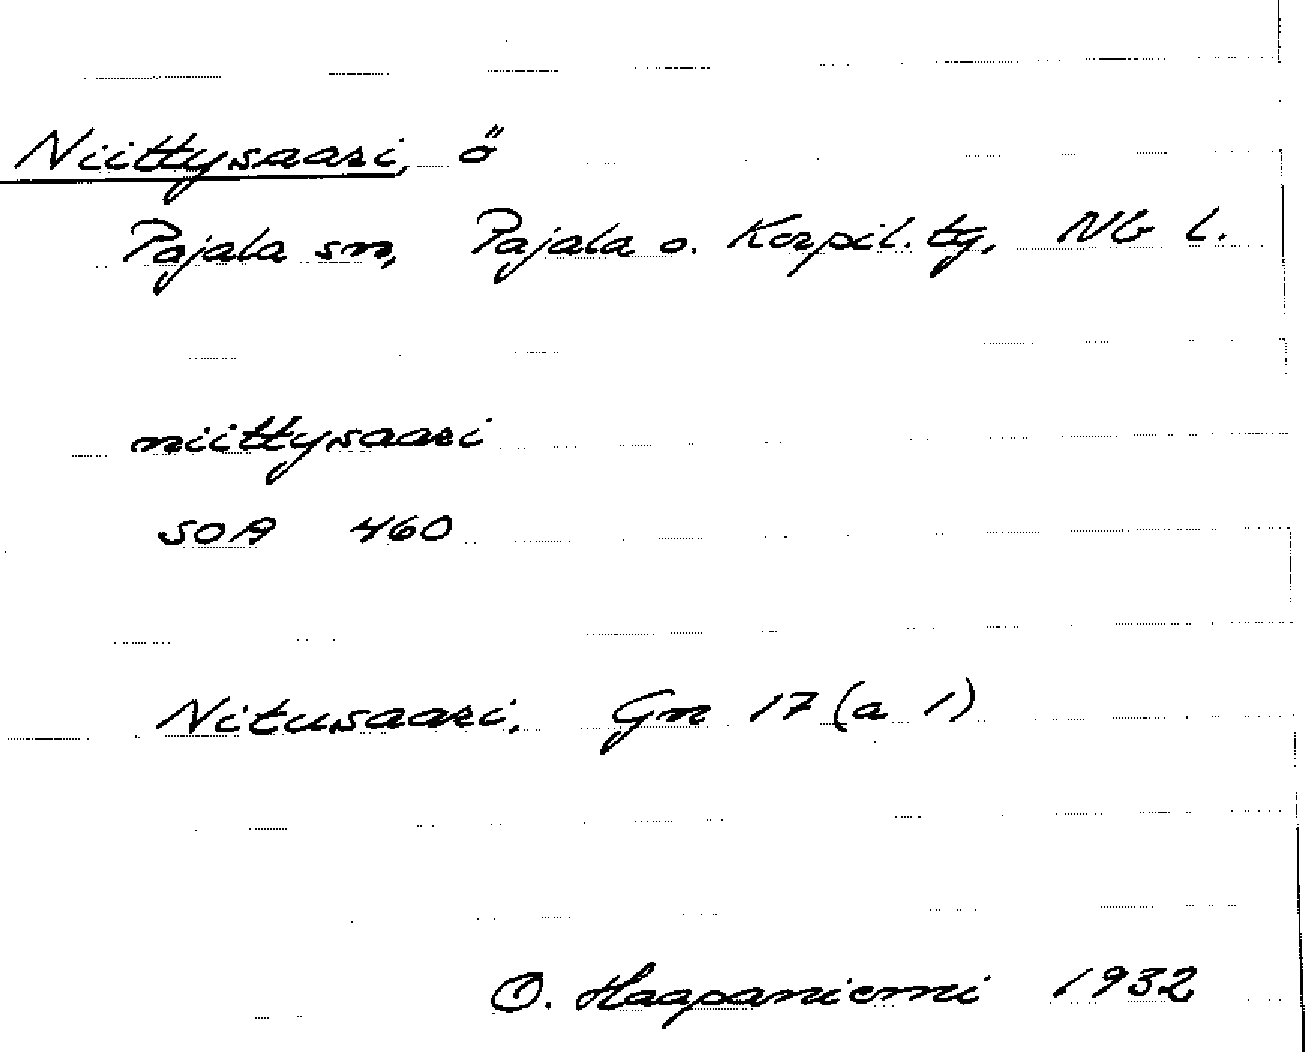 Niittysaari, ö
Pajala sn, Pajala o. Korpil. tg, NB l.
niittysaari
SOA 460
Nitusaari, Gm 17 (a 1)
O. Haapaniemi 1932